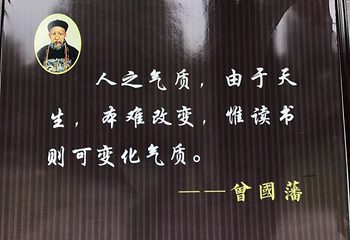 人之气质，由于天
生，本难改变，惟读书
则可变化气质。
——曾國藩